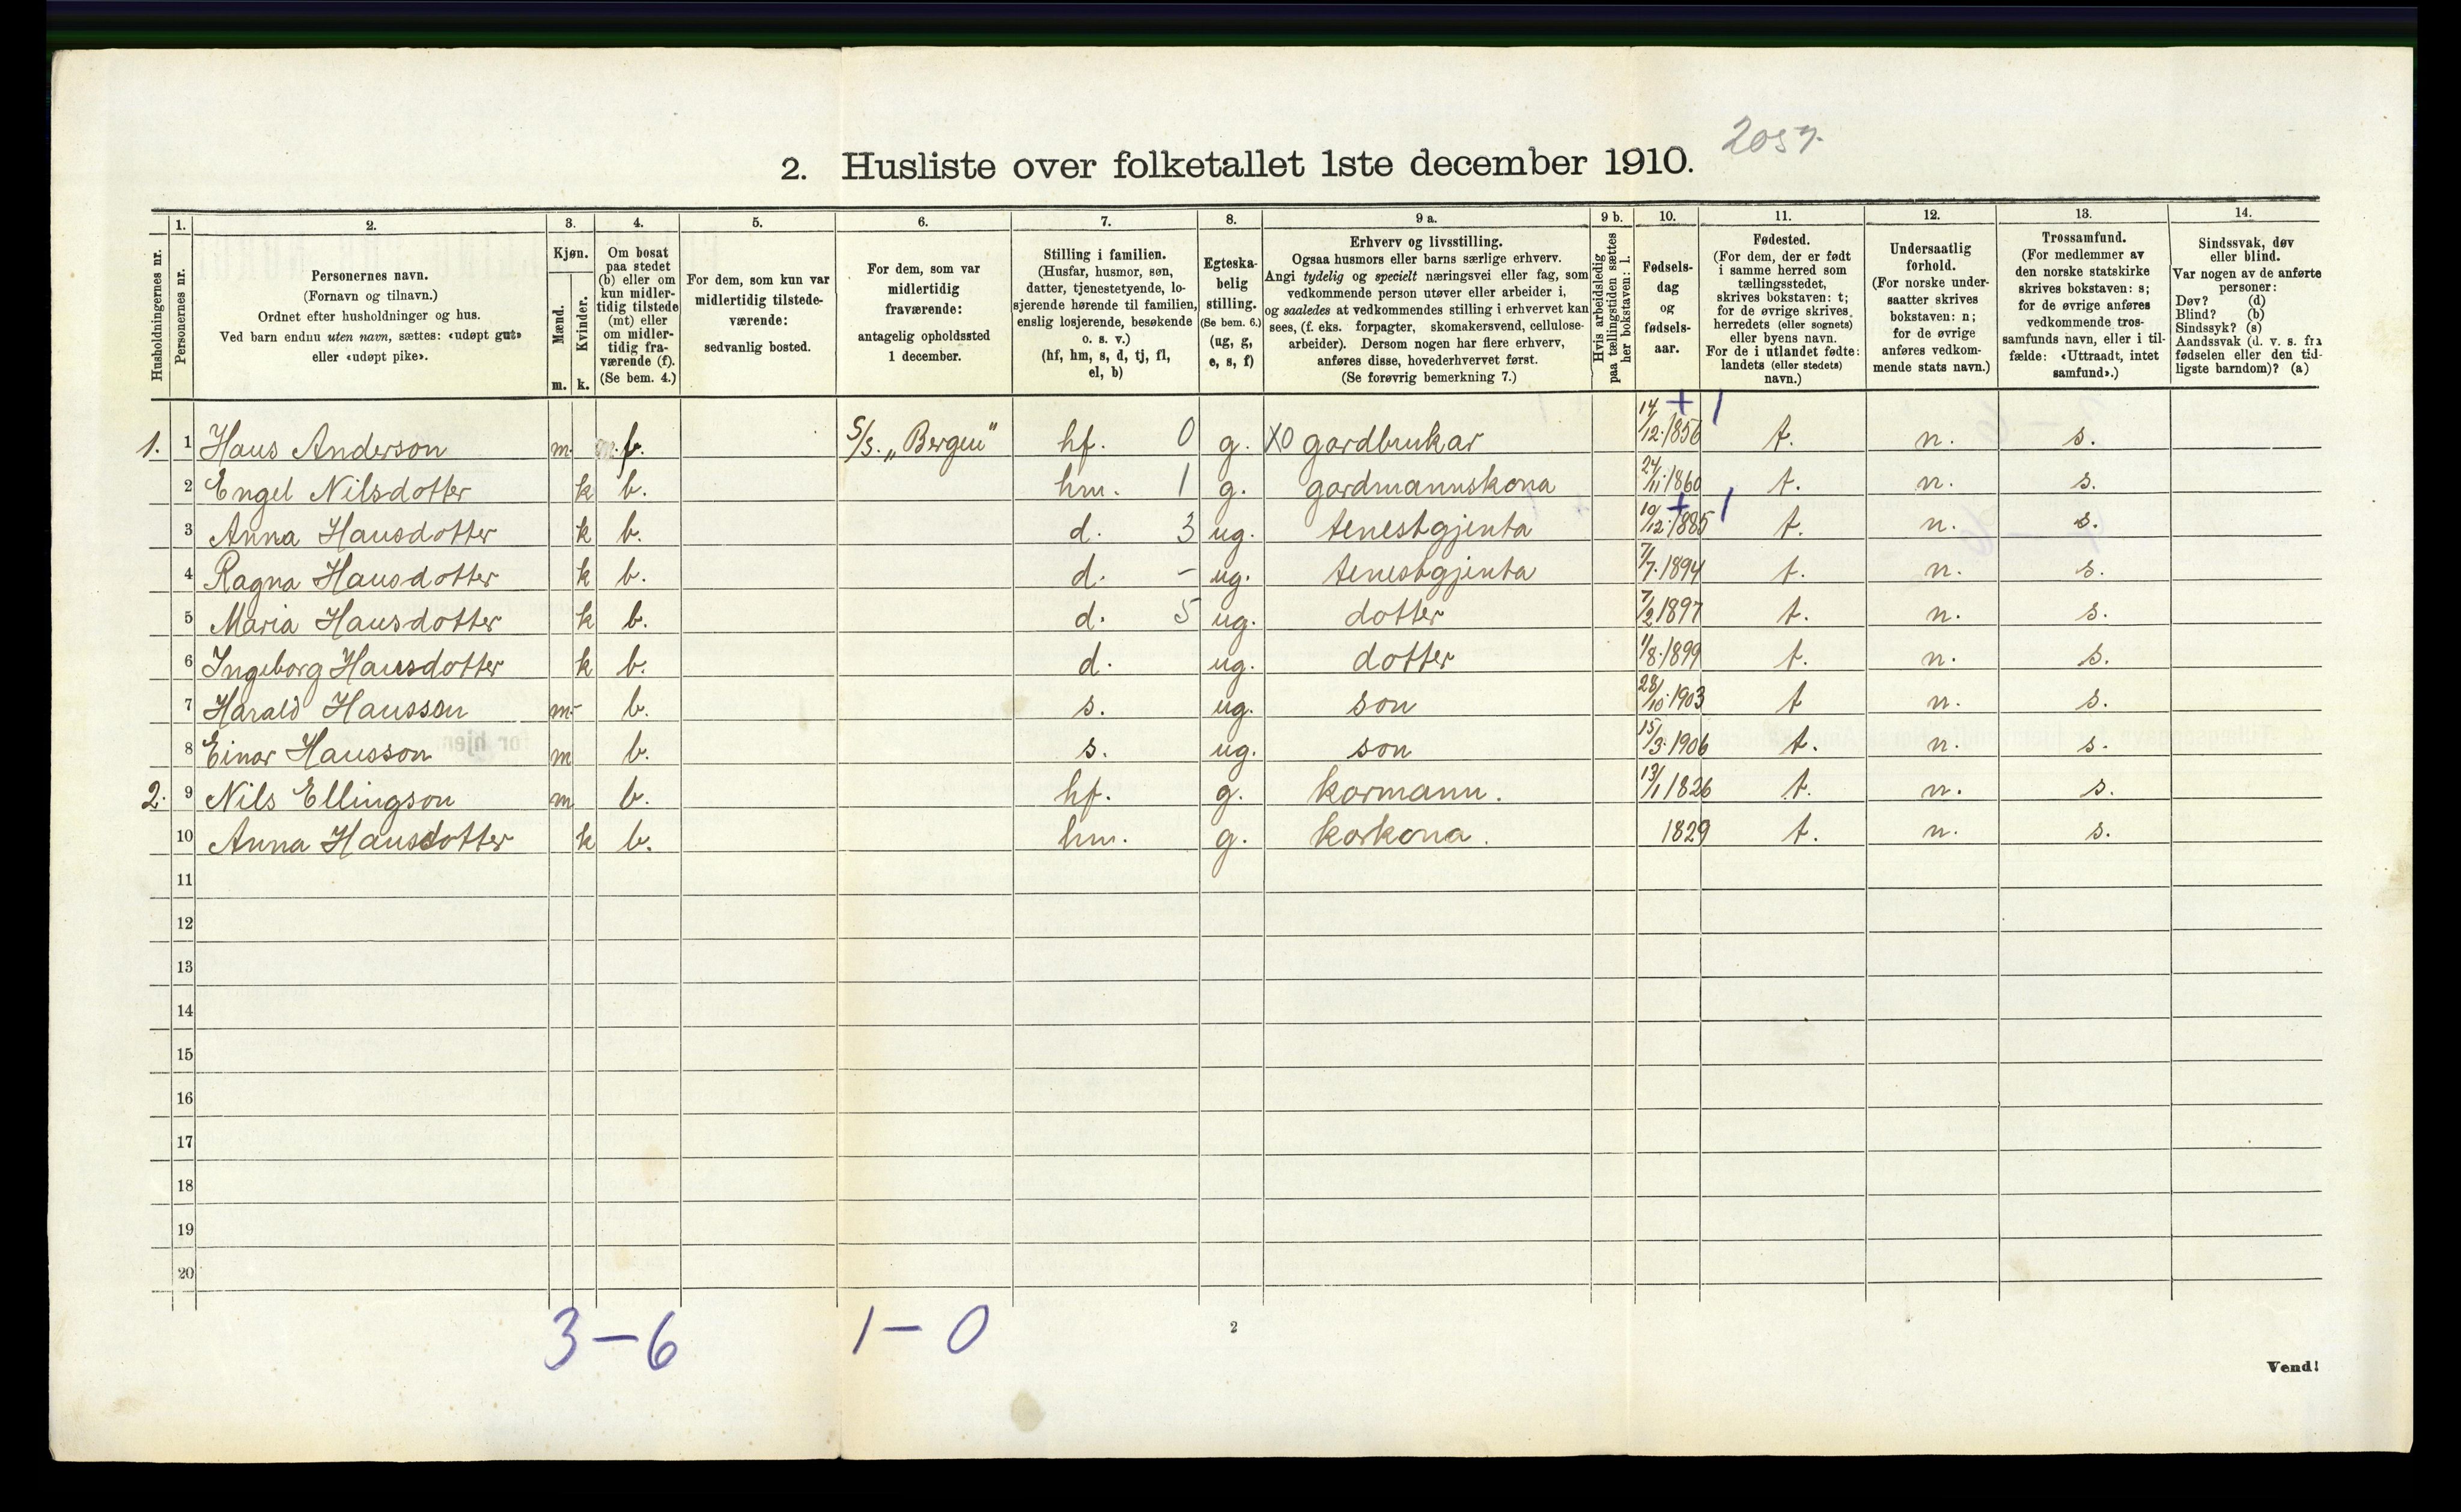 2057.
2. Husliste over folketallet 1ste december 1910.
Husholdningernes nr.
1.
Personernes nr.
2.
Personernes navn.
(Fornavn og tilnavn.)
Ordnet efter husholdninger og hus.
Ved barn endnu uten navn, sættes: «udøpt gut»
eller «udøpt pike».
3.
Kjøn.
Mænd.
Kvinder.
m. k.
4.
Om bosat
paa stedet
(b) eller om
kun midler-
tidig tilstede
(mt) eller
om midler-
tidig fra-
værende (f).
(Se bem. 4.)
5.
For dem, som kun var
midlertidig tilstede-
værende:
sedvanlig bosted.
6.
For dem, som var
midlertidig
fraværende:
antagelig opholdssted
1 december.
7.
Stilling i familien.
(Husfar, husmor, søn,
datter, tjenestetyende, lo-
sjerende hørende til familien,
enslig losjerende, besøkende
o. s. v.)
(hf, hm, s, d, tj, fl,
el, b)
8.
Egteska-
belig
stilling.
(Se bem. 6.)
(ug, g,
e, s, f)
9 a.
Erhverv og livsstilling.
Ogsaa husmors eller barns særlige erhverv.
Angi tydelig og specielt næringsvei eller fag, som
vedkommende person utøver eller arbeider i,
og saaledes at vedkommendes stilling i erhvervet kan
sees, (f. eks. forpagter, skomakersvend, cellulose-
arbeider). Dersom nogen har flere erhverv,
anføres disse, hovederhvervet først.
(Se forøvrig bemerkning 7.)
9 b.
Hvis arbeidsledig
paa tællingstiden sættes
her bokstaven: l.
10.
Fødsels-
dag
og
fødsels-
aar.
11.
Fødested.
(For dem, der er født
i samme herred som
tællingsstedet,
skrives bokstaven: t;
for de øvrige skrives
herredets (eller sognets)
eller byens navn.
For de i utlandet fødte:
landets (eller stedets)
navn.)
12.
Undersaatlig
forhold.
(For norske under-
saatter skrives
bokstaven: n;
for de øvrige
anføres vedkom-
mende stats navn.)
13.
Trossamfund.
(For medlemmer av
den norske statskirke
skrives bokstaven: s;
for de øvrige anføres
vedkommende tros-
samfunds navn, eller i til-
fælde: «Uttraadt, intet
samfund».)
14.
Sindssvak, døv
eller blind.
Var nogen av de anførte
personer:
Døv? (d)
Blind? (b)
Sindssyk? (s)
Aandssvak (d. v. s. fra
fødselen eller den tid-
ligste barndom)? (a)
1. 1 Hans Anderson m. f. S/S. „Bergen" hf. 0 g. X0 gardbrukar 14/12.1856 + 1 t. n. s.
2 Engel Nilsdotter k b. hm. 1 g. gardmannskona 24/11.1860 t. n. s.
3 Anna Hansdotter k b. d. 3 ug. tenestgjenta 10/12.1885 + 1 t. n. s.
4 Ragna Hansdotter k b. d. - ug. tenestgjenta 7/7.1894 t. n. s.
5 Maria Hansdotter k b. d. 5 ug. dotter 7/2 1897 t. n. s.
6 Ingeborg Hansdotter k b. d. ug. dotter 1/8.1899 t. n. s.
7 Harald Hansson m. b. s. ug. son 28/10.1903 t n. s.
8 Einar Hansson m b. s. ug. son 15/3.1906 t. n. s.
2. 9 Nils Ellingson m b. hf. g. kormann. 13/1 1826 t. n. s.
10 Anna Hansdotter k b. hm. g. korkona. 1829 t. n. s.
11
12
13
14
15
16
17
18
19
20
3 — 6 1 — 0
2
Vend!